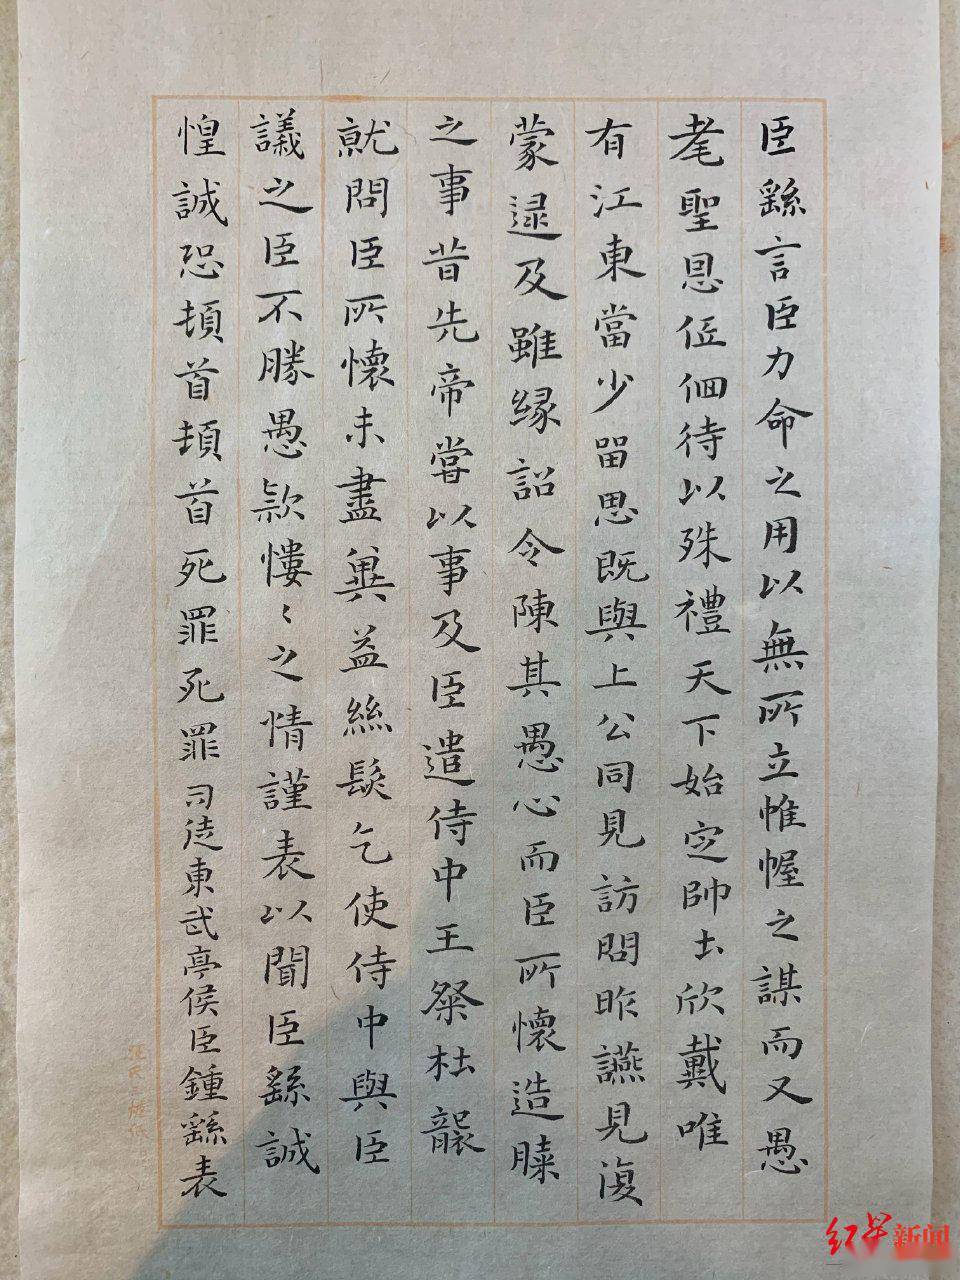 臣繇言臣力命之用以無所立帷幄之謀而又愚
耄聖恩低佪待以殊禮天下始定帥土欣戴唯
有江東當少留思既與上公同見訪問昨讌見復
蒙逮及雖緣詔令陳其愚心而臣所懷造膝
之事昔先帝嘗以事及臣遣侍中王粲杜襲
就問臣所懷未盡冀益絲髮乞使侍中與臣
議之臣不勝愚款慺〻之情謹表以聞臣繇誠
惶誠恐頓首頓首死罪死罪司徒東武亭侯臣鍾繇表
红星新闻